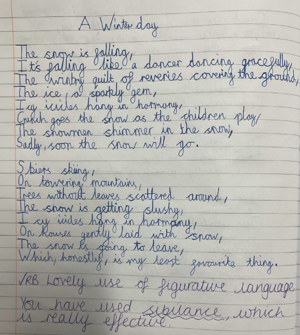 A Winter day
The snow is falling,
It's falling like a dancer dancing gracefully,
The wintry quilt of reveries covering the ground,
The ice, a sparkly gem,
Icy icicles hang in harmony,
goes the snow as the children play
The snowmen shimmer in the snow,
Sadly, soon the snow will go.
Skiers skiing,
On towering mountains,
Trees without leaves scattered around,
The snow is getting slushy,
Icy icicles hang in harmony,
On houses gently laid with snow,
The snow is going to leave,
Which, honestly, is my least favourite thing.
VRB Lovely use of figurative language
You have used sibilance, which
is really effective.